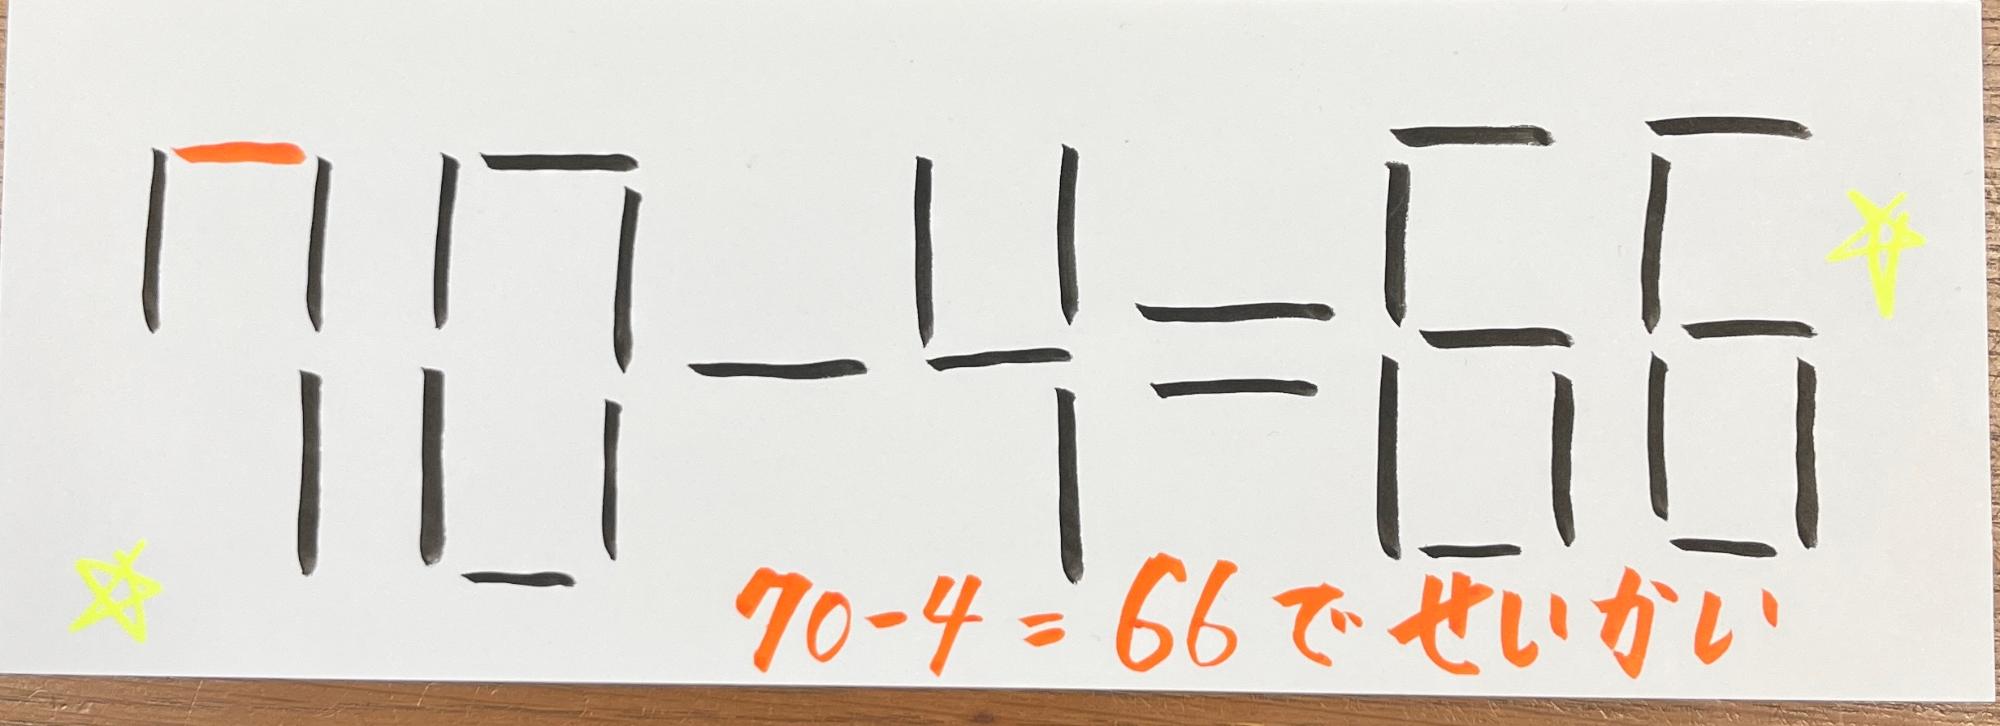 70-4=66
70-4=66でせいかい